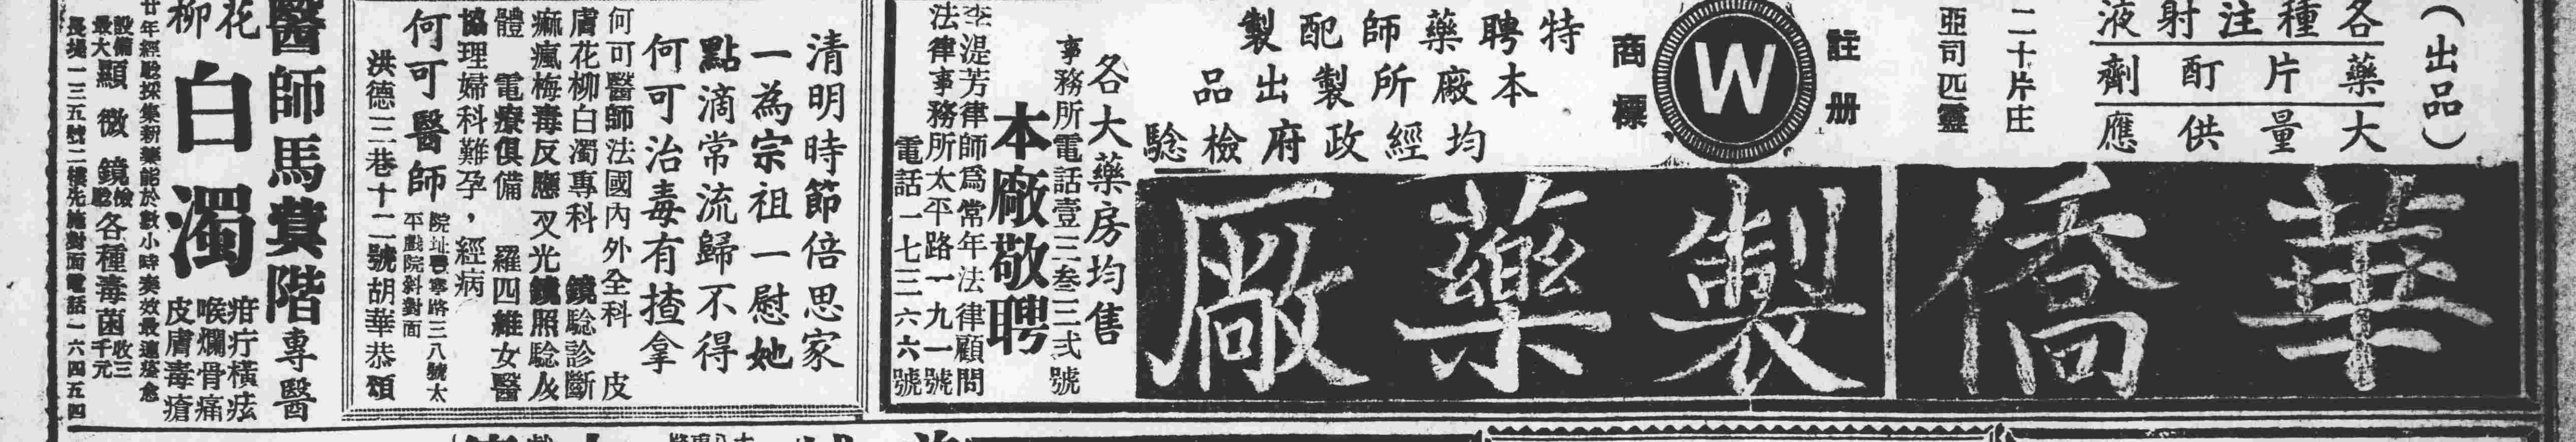 （出品）
各種注射液
藥片酊劑
大量供應
二十片庄
亞司匹靈
註册
W
商標
特聘藥師配製
本廠所製出品
均經政府檢驗
華僑製藥廠
各大藥房均售
事務所電話壹二叁三弍號
本廠敬聘
李湜芳律師為常年法律顧問
法律事務所太平路一九一號
電話一七三六六號
清明時節倍思家
一為宗祖一慰她
點滴常流歸不得
何可治毒有揸拿
何可醫師法國內外全科 皮
膚花柳白濁專科 鏡驗診斷
痲瘋梅毒反應叉光鏡照驗及
體 電療俱備 羅四維女醫
協理婦科難孕，經病
何可醫師
院址豐寧路三八號太
平戲院斜對面
洪德三巷十二號胡華恭頌
醫師馬蓂階專醫
花柳
白濁
疳疔橫痃
喉爛骨痛
皮膚毒瘡
廿年經驗採集新藥能於數小時奏效最速痊愈
設備最大顯微鏡檢驗各種毒菌收三千元
長堤一三五號二樓先施對面電話一六四五四